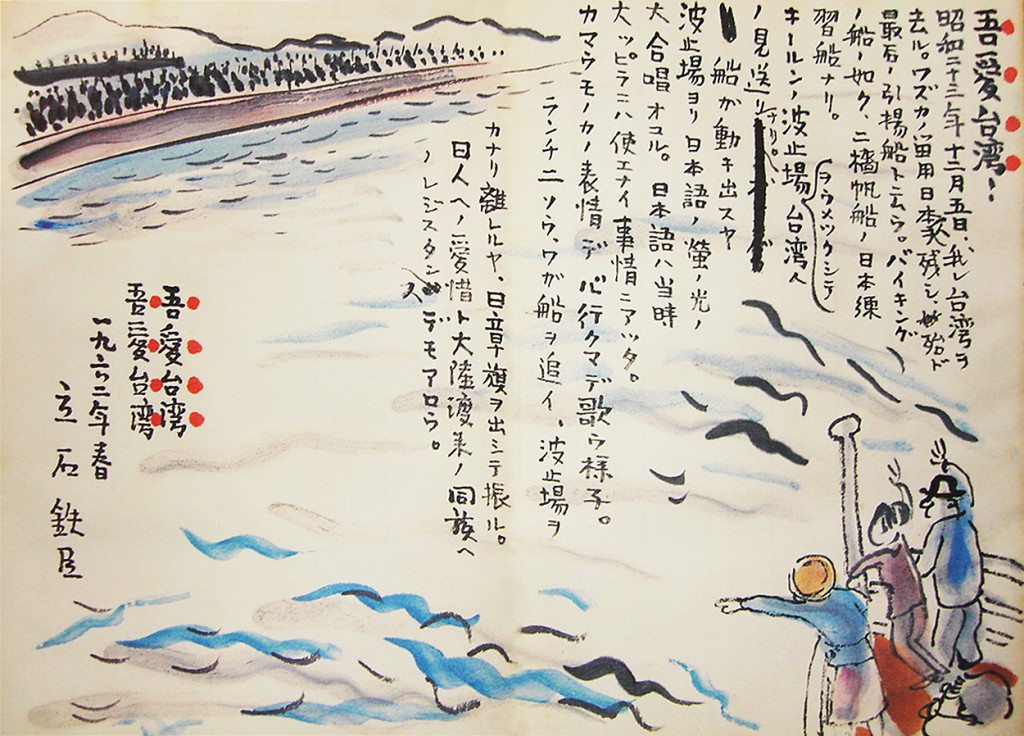 吾愛台湾!
昭和二十三年十二月五日、我レ台湾ヲ
去ル。ワズカノ留用日本人家残シ、殆ンド
最后ノ引揚船ト云ウ。バイキング
ノ船ノ如ク、二檣帆船ノ日本練
習船ナリ。
キールンノ波止場台湾人
ヲウメツクシテ
ノ見送リナリ。
船が動キ出スヤ
波止場ヨリ日本語ノ螢ノ光ノ
大合唱オコル。日本語ハ当時
大ッピラニハ使エナイ事情ニアッタ。
カマウモノカノ表情デ心行クマデ歌ウ様子。
ランチ二ソウ、ワガ船ヲ追イ、波止場ヲ
カナリ離レルヤ、日章旗ヲ出シテ振ル。
日人ヘノ愛惜ト大陸渡来ノ同族ヘ
ノレジスタンスデモアロウ。
吾愛台湾
吾愛台湾
一九六二年春
立石鉄臣